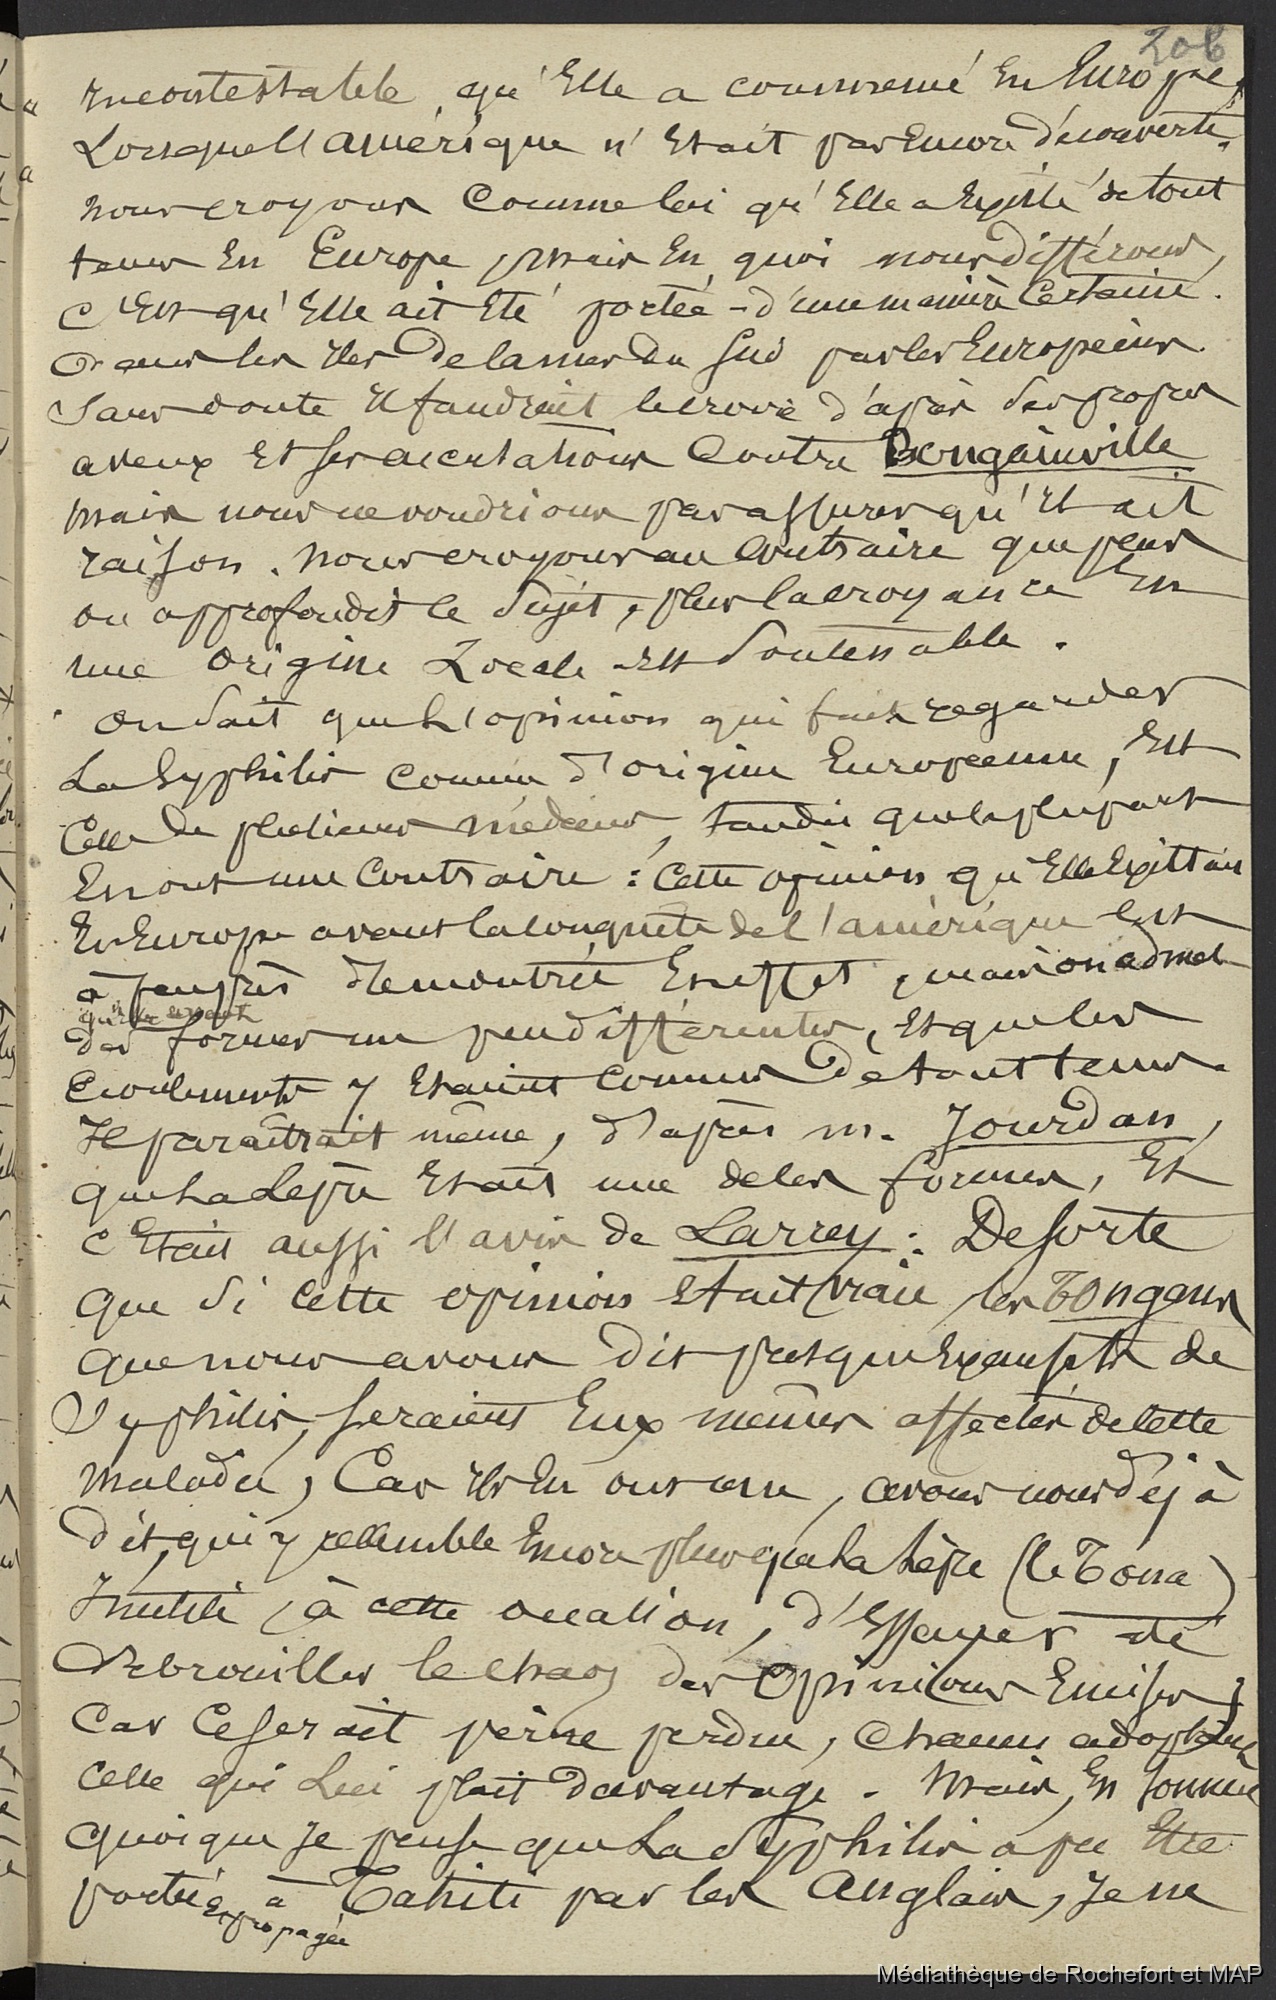 206
incontestable, qu'Elle a commencé En Europe,
Lorsque l'amérique n'Etait pas Encore découverte.
nous croyons Comme lui qu'Elle a Existé de tout
tems En Europe, mais En quoi nous différons,
c'Est qu'Elle ait Eté portée d'une manière Certaine
dans les Iles de la mer du Sud par les Européens.
Sans doute Il faudrait le croire d'après ses propres
aveux Et ses accusations Contre Bougainville
mais nous ne voudrions pas assurer qu'Il ait
raison. nous croyons au Contraire que plus
on approfondit le Sujet, plus la croyance En
une origine Locale Est Soutenable.
on Sait que L'opinion qui fait regarder
La Syphilis comme d'origine Européenne, Est
Celle de plusieurs médecins, tandis que la plupart
En ont une Contraire : Cette opinion qu'Elle Existait
En Europe avant la conquête de l'amérique Est
à peu près démontrée En effet, mais on admet
des formes un peu différentes, Et que les
Ecoulements y Etaient connus de tout tems.
Il paraîtrait même, d'après m. Jourdan,
que La Lèpre Etait une de les formes, Et
c'Etait aussi l'avis de Larrey : De sorte
que Si Cette opinion Etait vraie les Tongans
que nous avons dit presqu'Exempts de
Syphilis, Seraient Eux mêmes affectés de Cette
maladie, Car Ils En ont une, avons nous déjà
dit, qui y ressemble Encore plus que La Lèpre (le Tona)
Inutile, à cette occasion, d'Essayer de
débrouiller le chaos des Opinions Emises,
Car Ce serait peine perdue, chacun adoptant
celle qui Lui plait davantage. Mais, En Somme
quoique Je pense que La Syphilis a pu Etre
portée à Tahiti par les Anglais, Je ne
Et propagée
Médiathèque de Rochefort et MAP